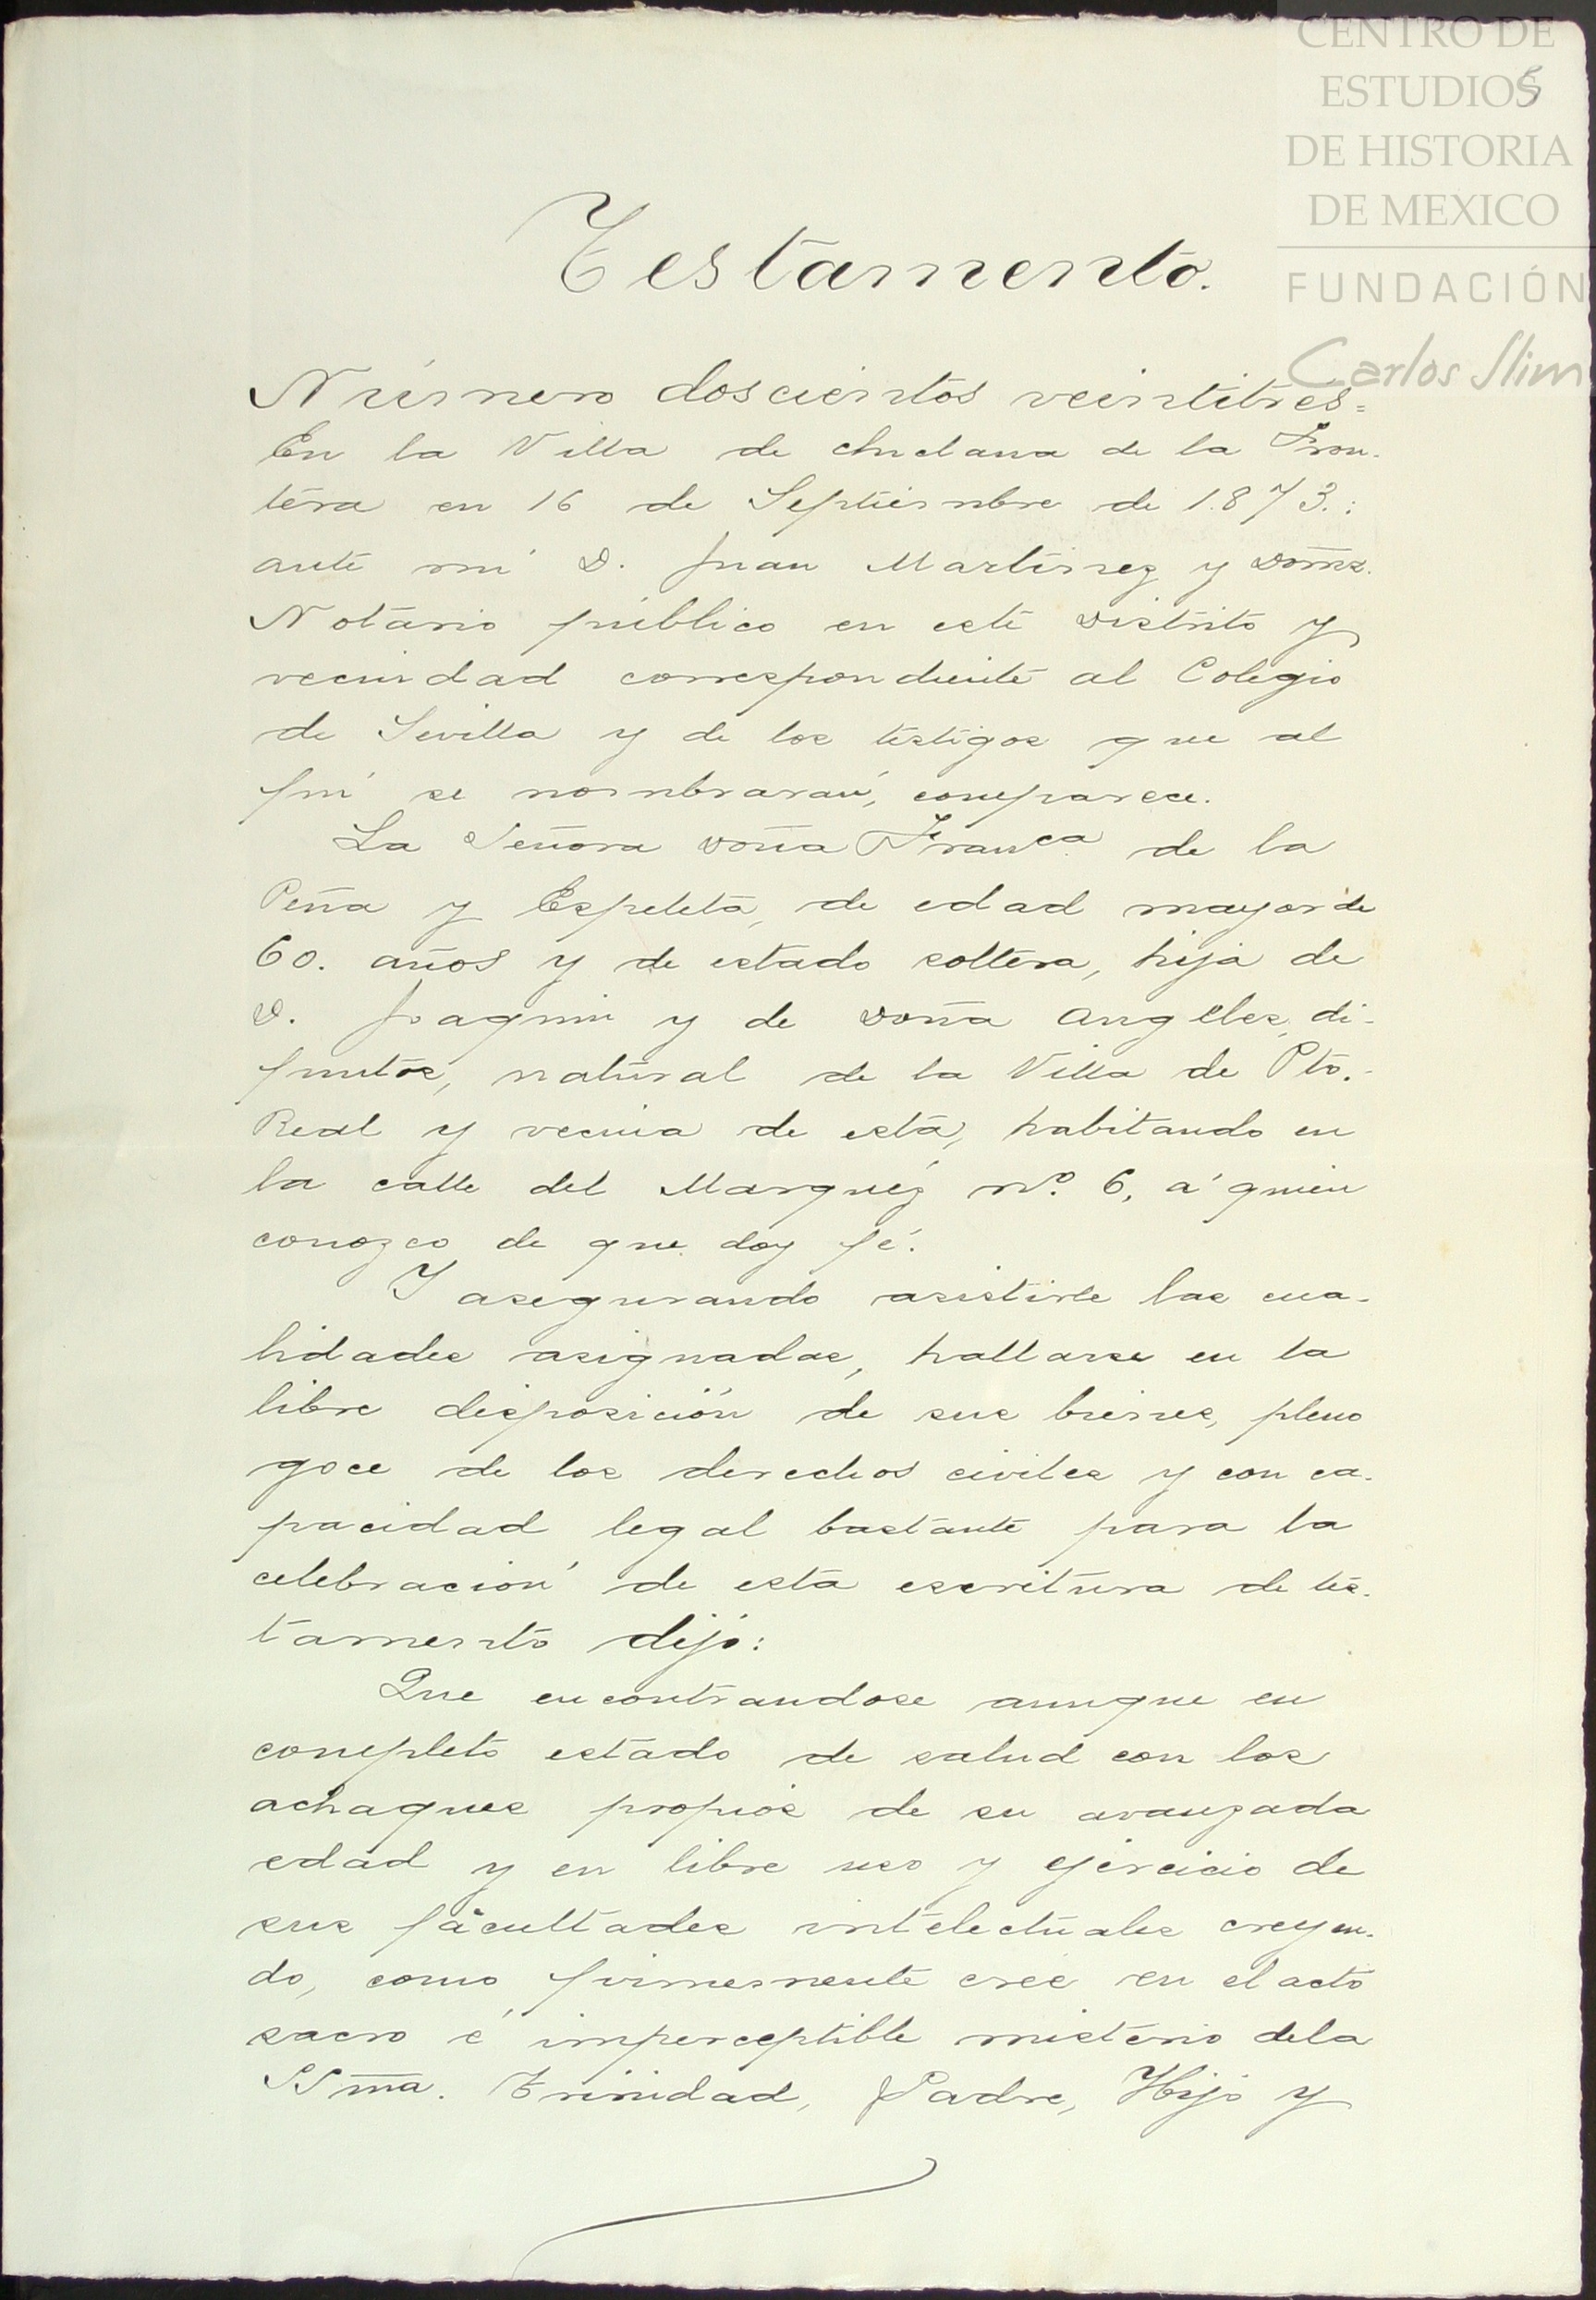 CENTRO DE
ESTUDIOS
DE HISTORIA
DE MEXICO
FUNDACIÓN
Carlos Slim
5
Testamento.
Número doscientos veintitres=
En la Villa de Chiclana de la Fron-
tera en 16 de Septiembre de 1.873.:
ante mí D. Juan Martinez y
Notario público en este Distrito y
vecindad correspondiente al Colegio
de Sevilla y de los testigos que al
fin se nombrarán, comparece.
La Señora Doña Franca de la
Peña y Espeleta, de edad mayor de
60. años y de estado soltera, hija de
D. Joaquin y de Doña Angeles, di-
funtos, natural de la Villa de Pto.-
Real y vecina de esta, habitando en
la calle del Marquéz nº. 6, á quien
conozco de que doy fé.
Y asegurando asistirle las cua-
lidades asignadas, hallarse en la
libre disposición de sus bienes, pleno
goce de los derechos civiles y con ca-
pacidad legal bastante para la
celebración de esta escritura de tes-
tamento dijo:
Que encontrandose aunque en
completo estado de salud con los
achaques propios de su avanzada
edad y en libre uso y ejercicio de
sus facultades intelectuales creyen-
do, como firmemente cree en el acto
sacro é imperceptible misterio dela
SSma. Trinidad, Padre, Hijo y